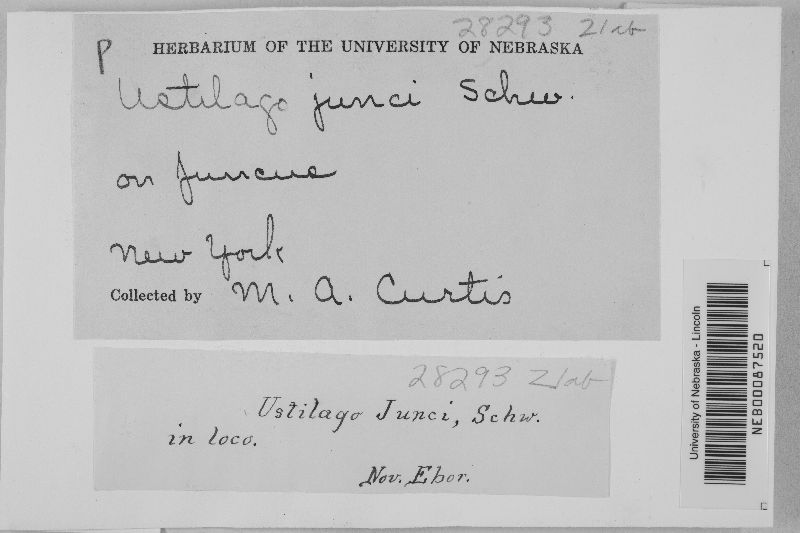 28293 21ab
P HERBARIUM OF THE UNIVERSITY OF NEBRASKA
Ustilago junci Schw.
on Juncus
New York
Collected by M. A. Curtis
28293 21ab
Ustilago Junci, Schw.
in loco.
Nov. Ebor.
University of Nebraska - Lincoln
NEB00087520